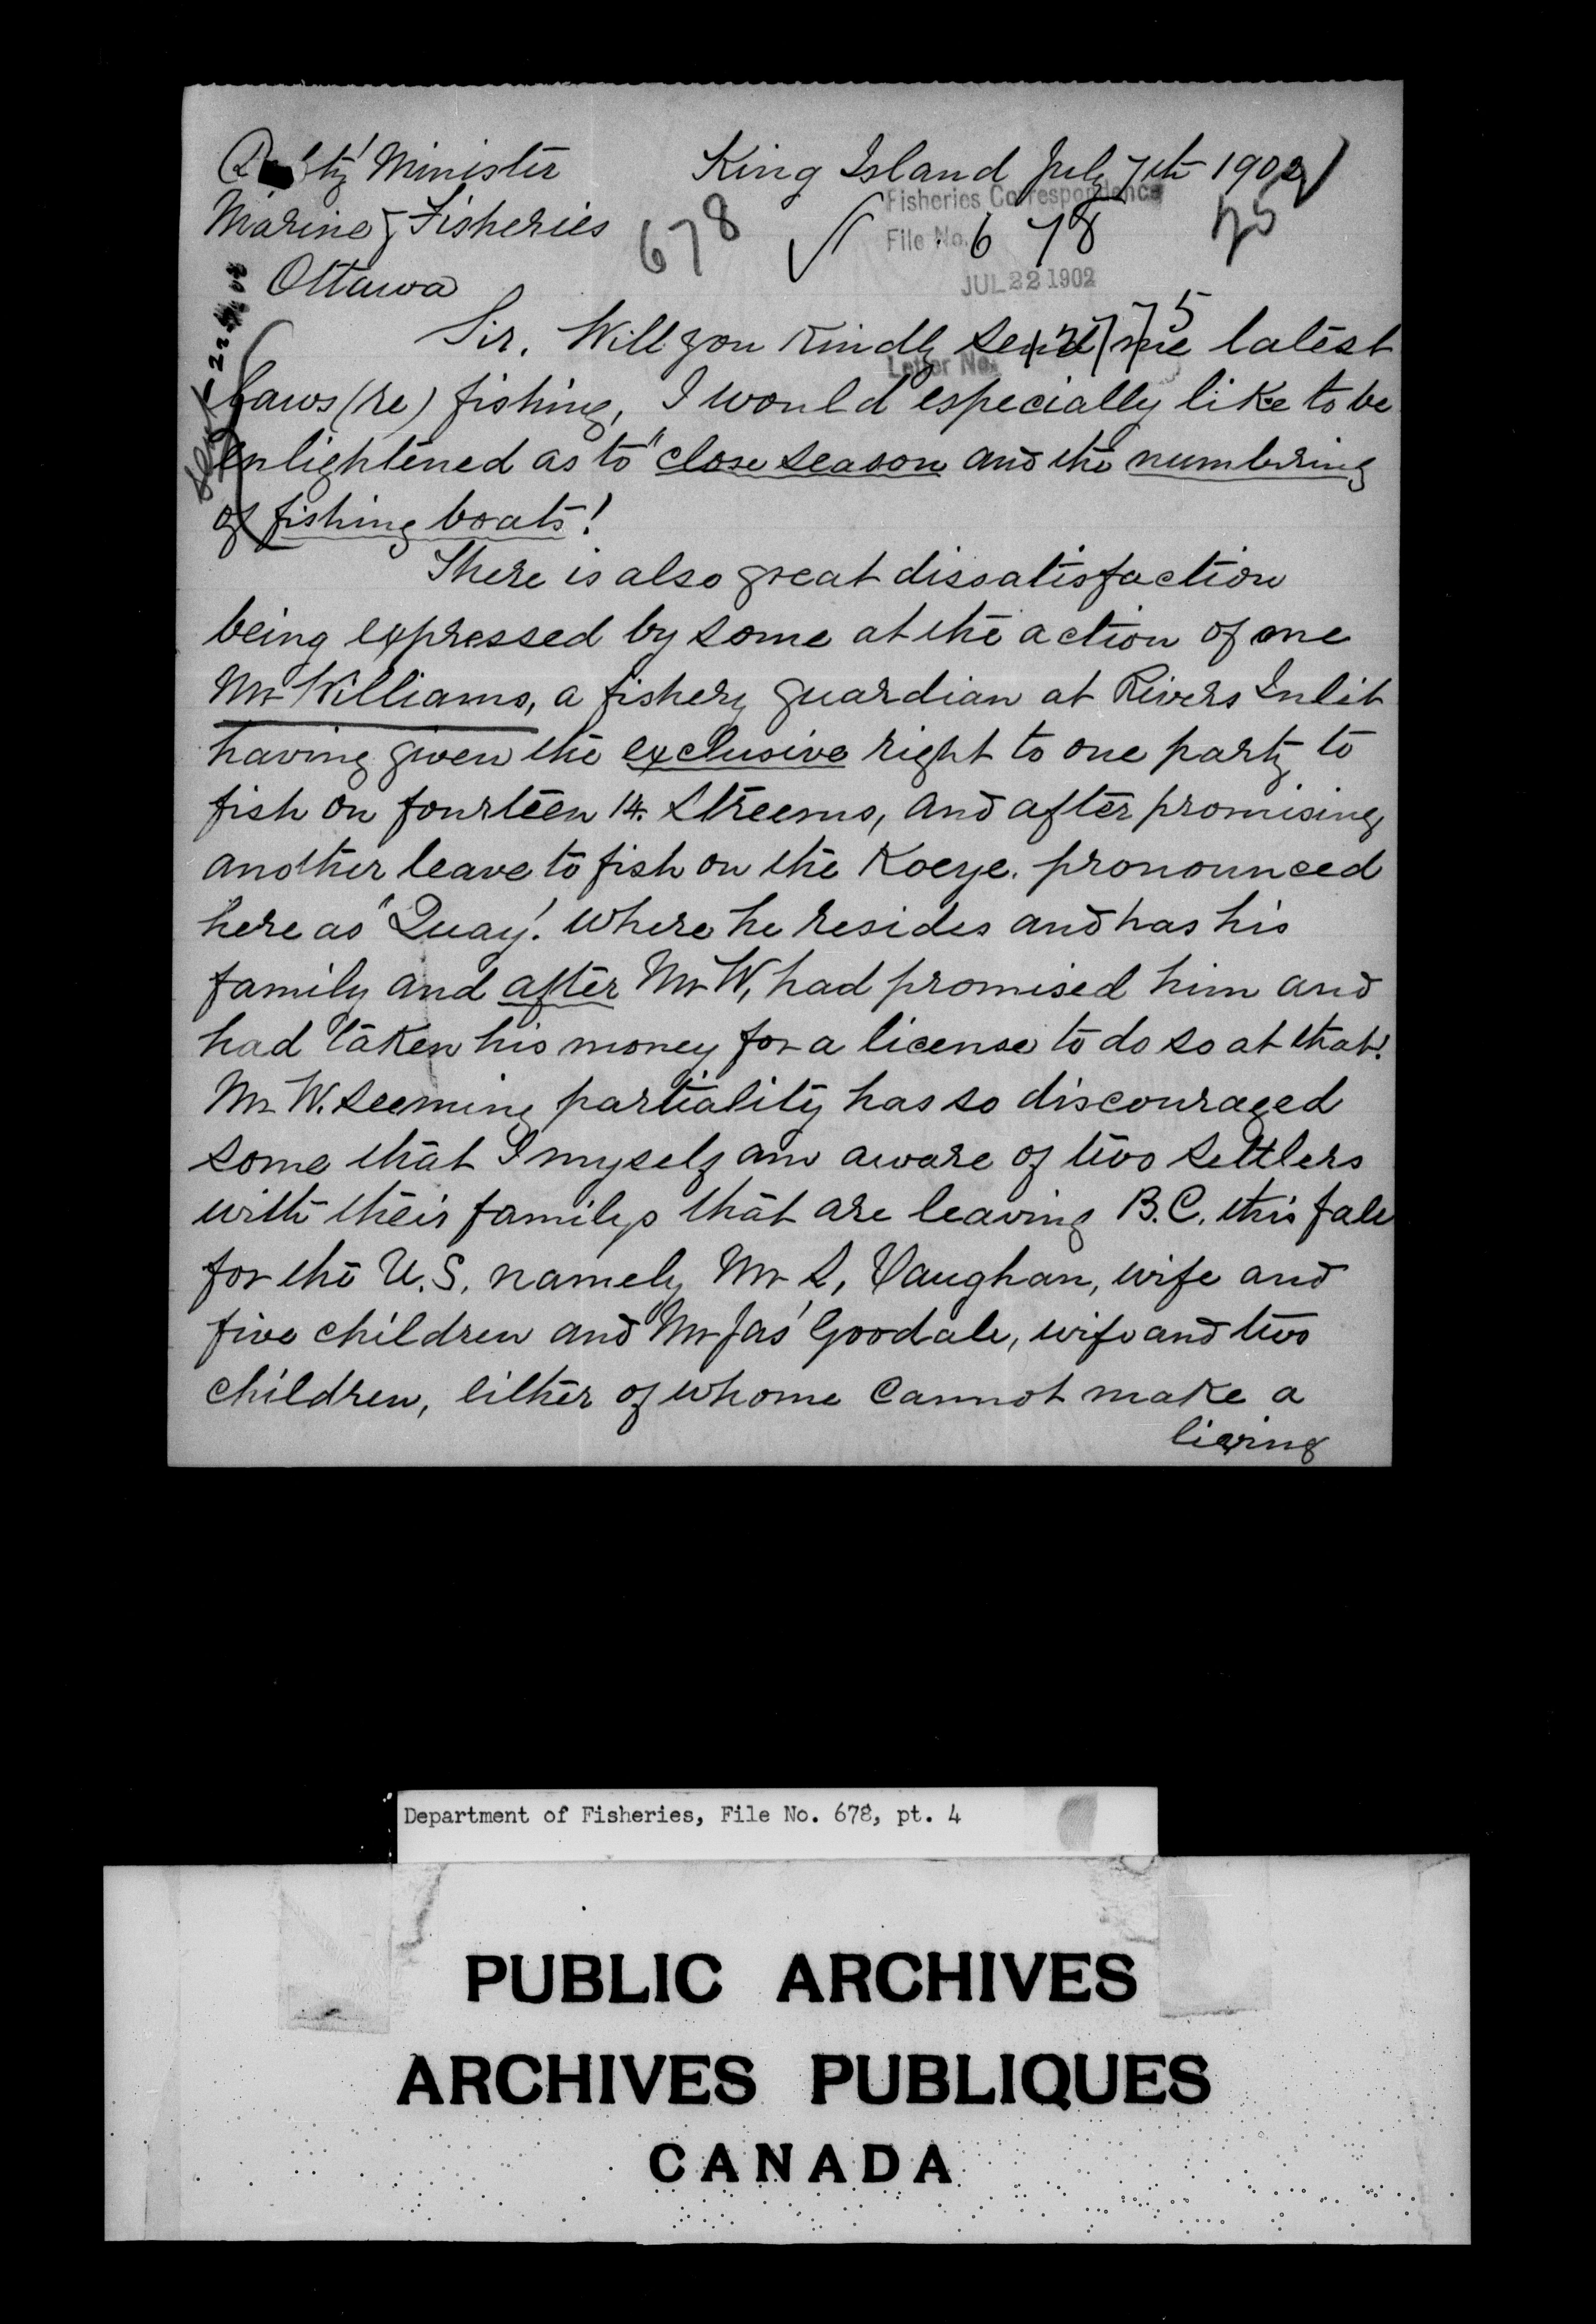 D'ty' Minister King Island July 7th 1902
Marine & Fisheries
Ottawa
678
Fisheries Correspondence
File No. 678
JUL 22 1902
Letter No.
Sir. Will you Kindly send me latest
Laws (re) fishing, I would especially like to be
enlightened as to "close season and the numbering
of fishing boats!
There is also great dissatisfaction
being expressed by some at the action of one
Mr Williams, a fishery guardian at Rivers Inlet
having given the exclusive right to one party to
fish on fourteen 14. Streems, and after promising
another leave to fish on the Koeye. pronounced
here as "Quay'. where he resides and has his
family and after Mr W, had promised him and
had taken his money for a license to do so at that!
Mr W. seeming partiality has so discouraged
some that I myself am aware of two settlers
with their familys that are leaving B.C. this fall
for the U.S. namely Mr S, Vaughan, wife and
five children and Mr Jas' Goodale, wife and two
children, either of whome cannot make a
living
Department of Fisheries, File No. 678, pt. 4
PUBLIC ARCHIVES
ARCHIVES PUBLIQUES
CANADA